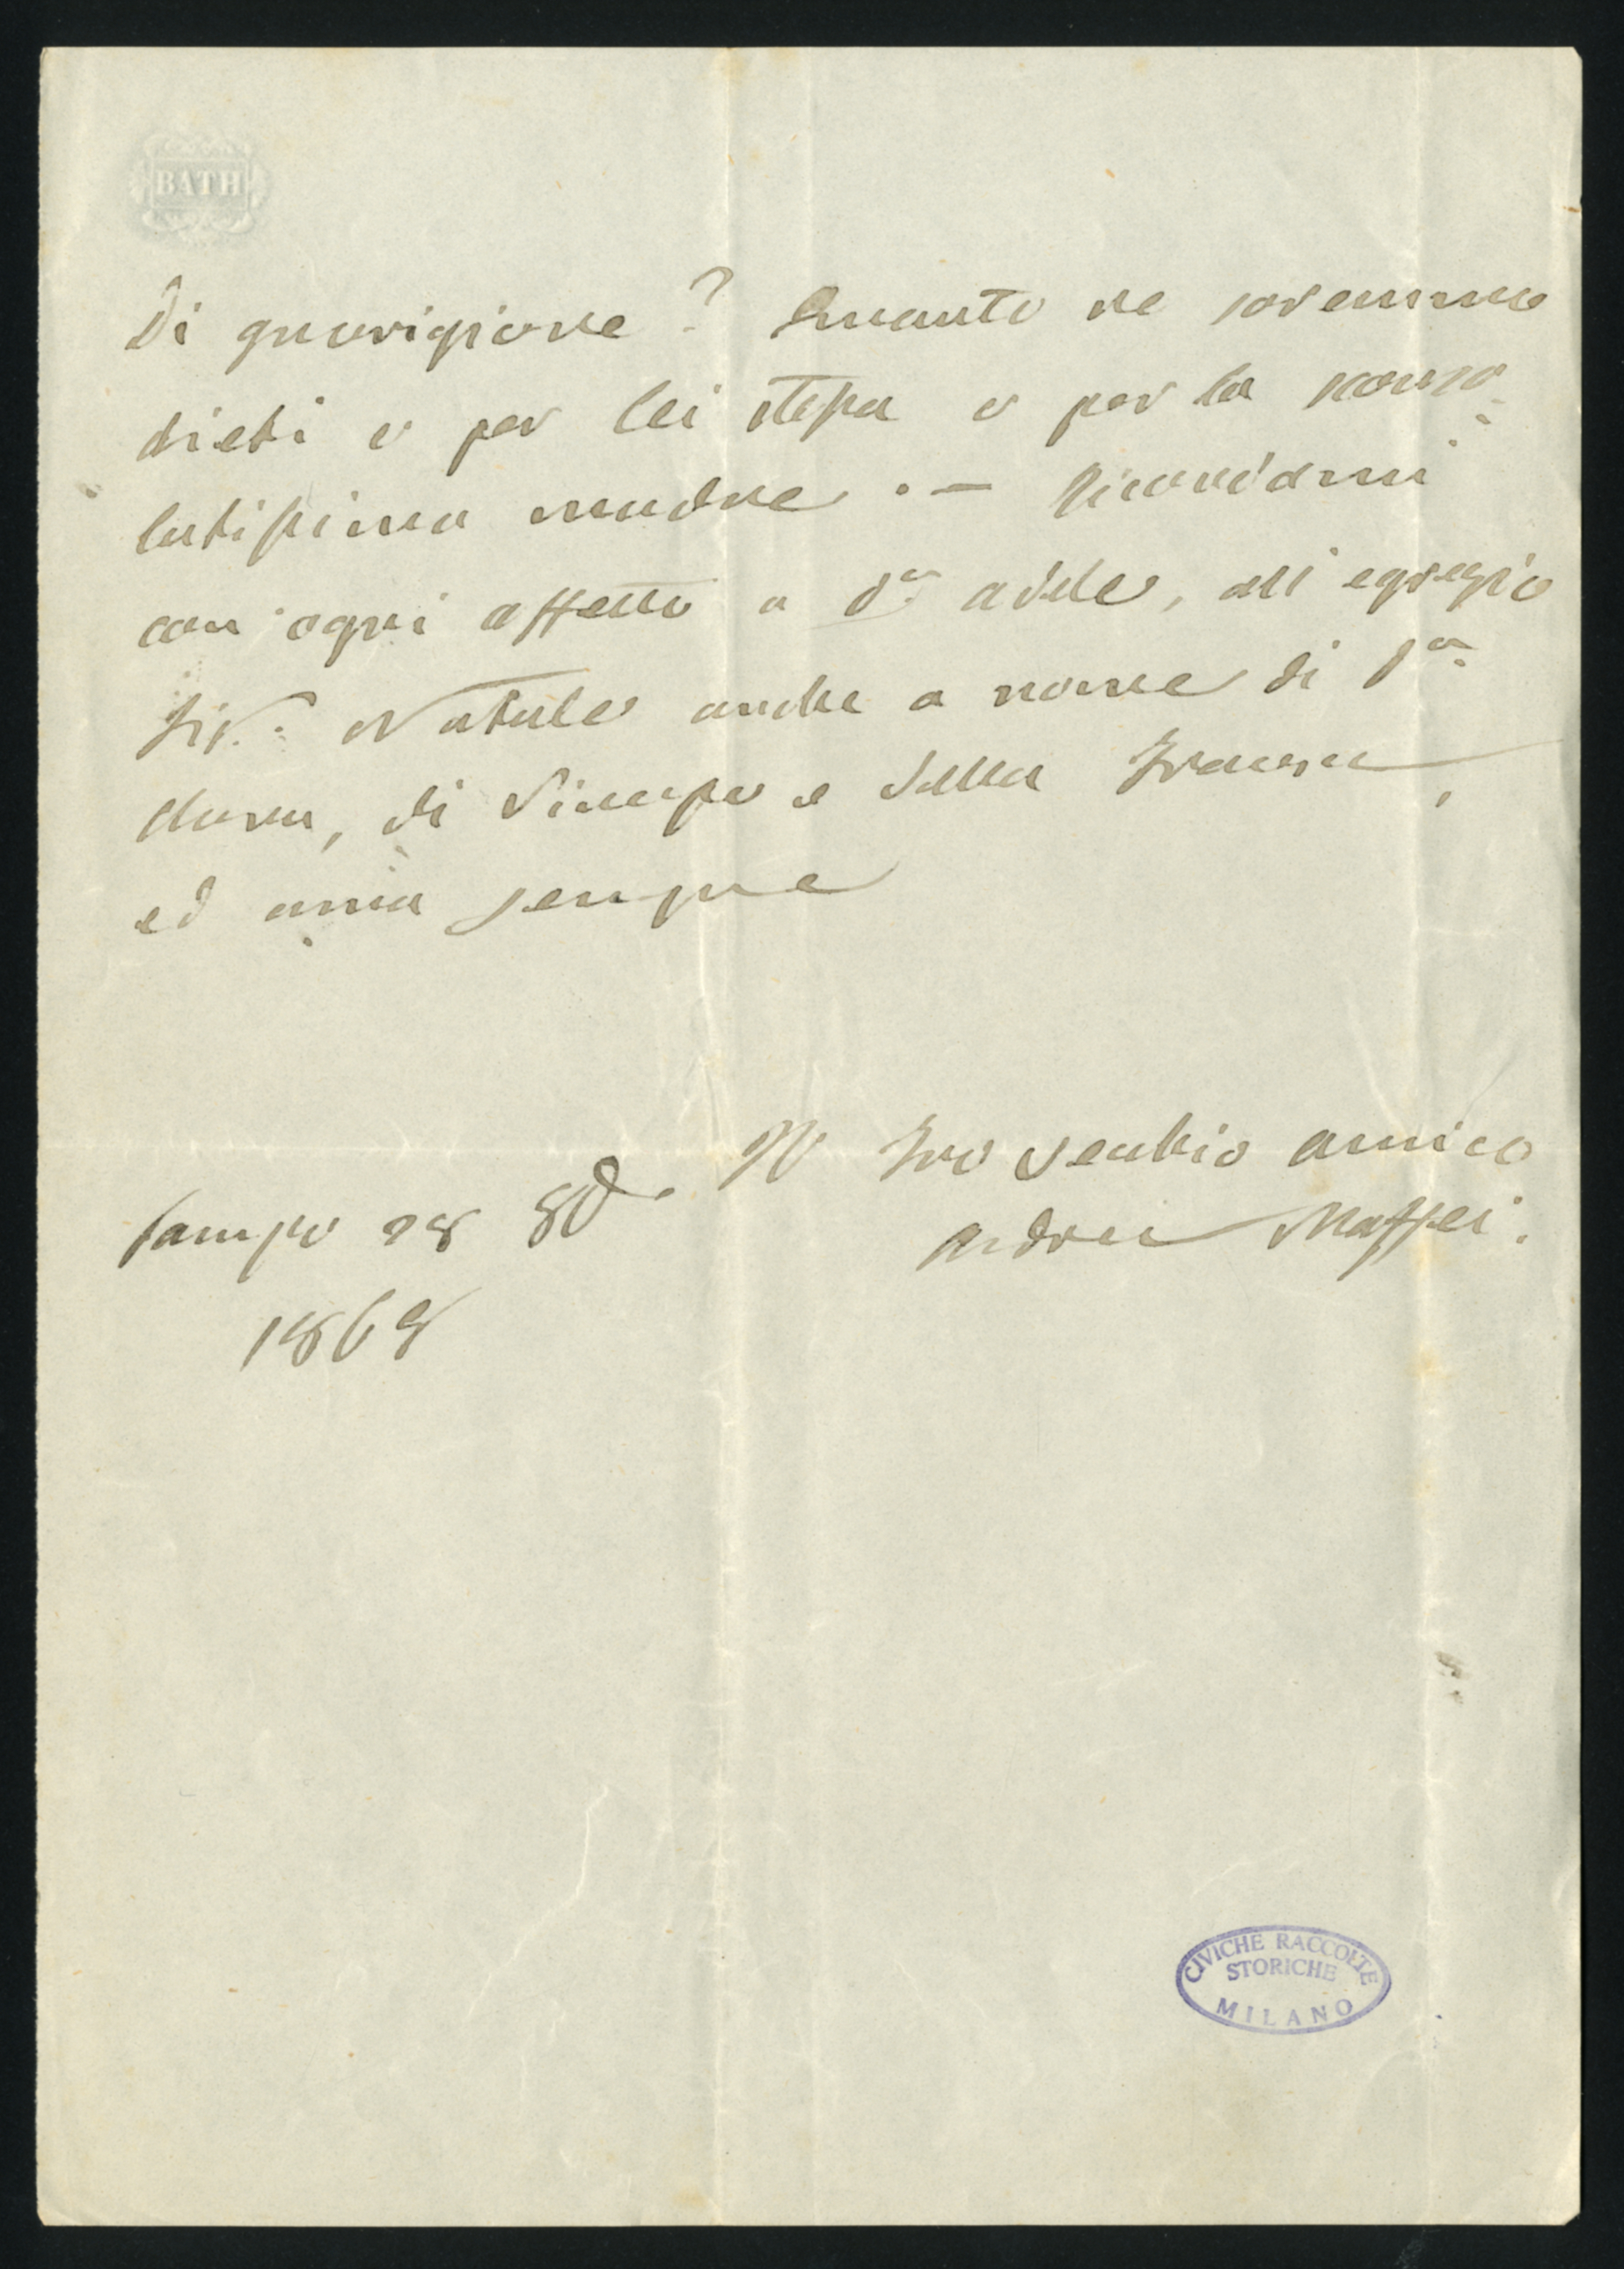 BATH
di guarigione? Quanto ne saremmo
lieti e per lei stessa e per la conso-
latissima madre. — Ricordami
con ogni affetto a D.a Adele, all'egregio
Sig.r Natale anche a nome di D.a
Clara, di e della
ed ama sempre
Il tuo vecchio amico
Campo 28 8b.
Andrea Maffei.
1868
CIVICHE RACCOLTE
STORICHE
MILANO